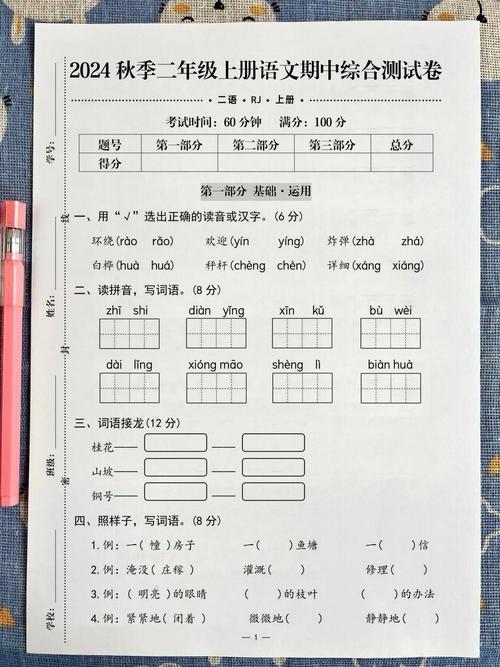 2024 秋季二年级上册语文期中综合测试卷
·二语·RJ·上册·
考试时间：60 分钟 满分：100 分
题号 第一部分 第二部分 第三部分 总分
得分
第一部分 基础·运用
一、用“√”选出正确的读音或汉字。(6 分)
环绕(rào rǎo) 欢迎(yín yíng) 炸弹(zhà zhá)
白桦(huà huá) 秤杆(chèng chèn) 详细(xáng xiáng)
二、读拼音，写词语。(8 分)
zhī shi diàn yǐng xīn kǔ bù wèi
dài lǐng xióng māo shèng lì biàn huà
三、词语接龙(12 分)
桂花—— ——
山坡—— ——
铜号—— ——
四、照样子，写词语。(8 分)
1. 例：一( 幢 )房子 一( )鱼塘 一( )信
2. 例：淹没( 庄稼 ) 灌溉( ) 修理( )
3. 例：( 明亮 )的眼睛 ( )的枝叶 ( )的办法
4. 例：紧紧地( 闭着 ) 微微地( ) 静静地( )
— 1 —
学号：
姓名：
班级：
学校：
线
封
密